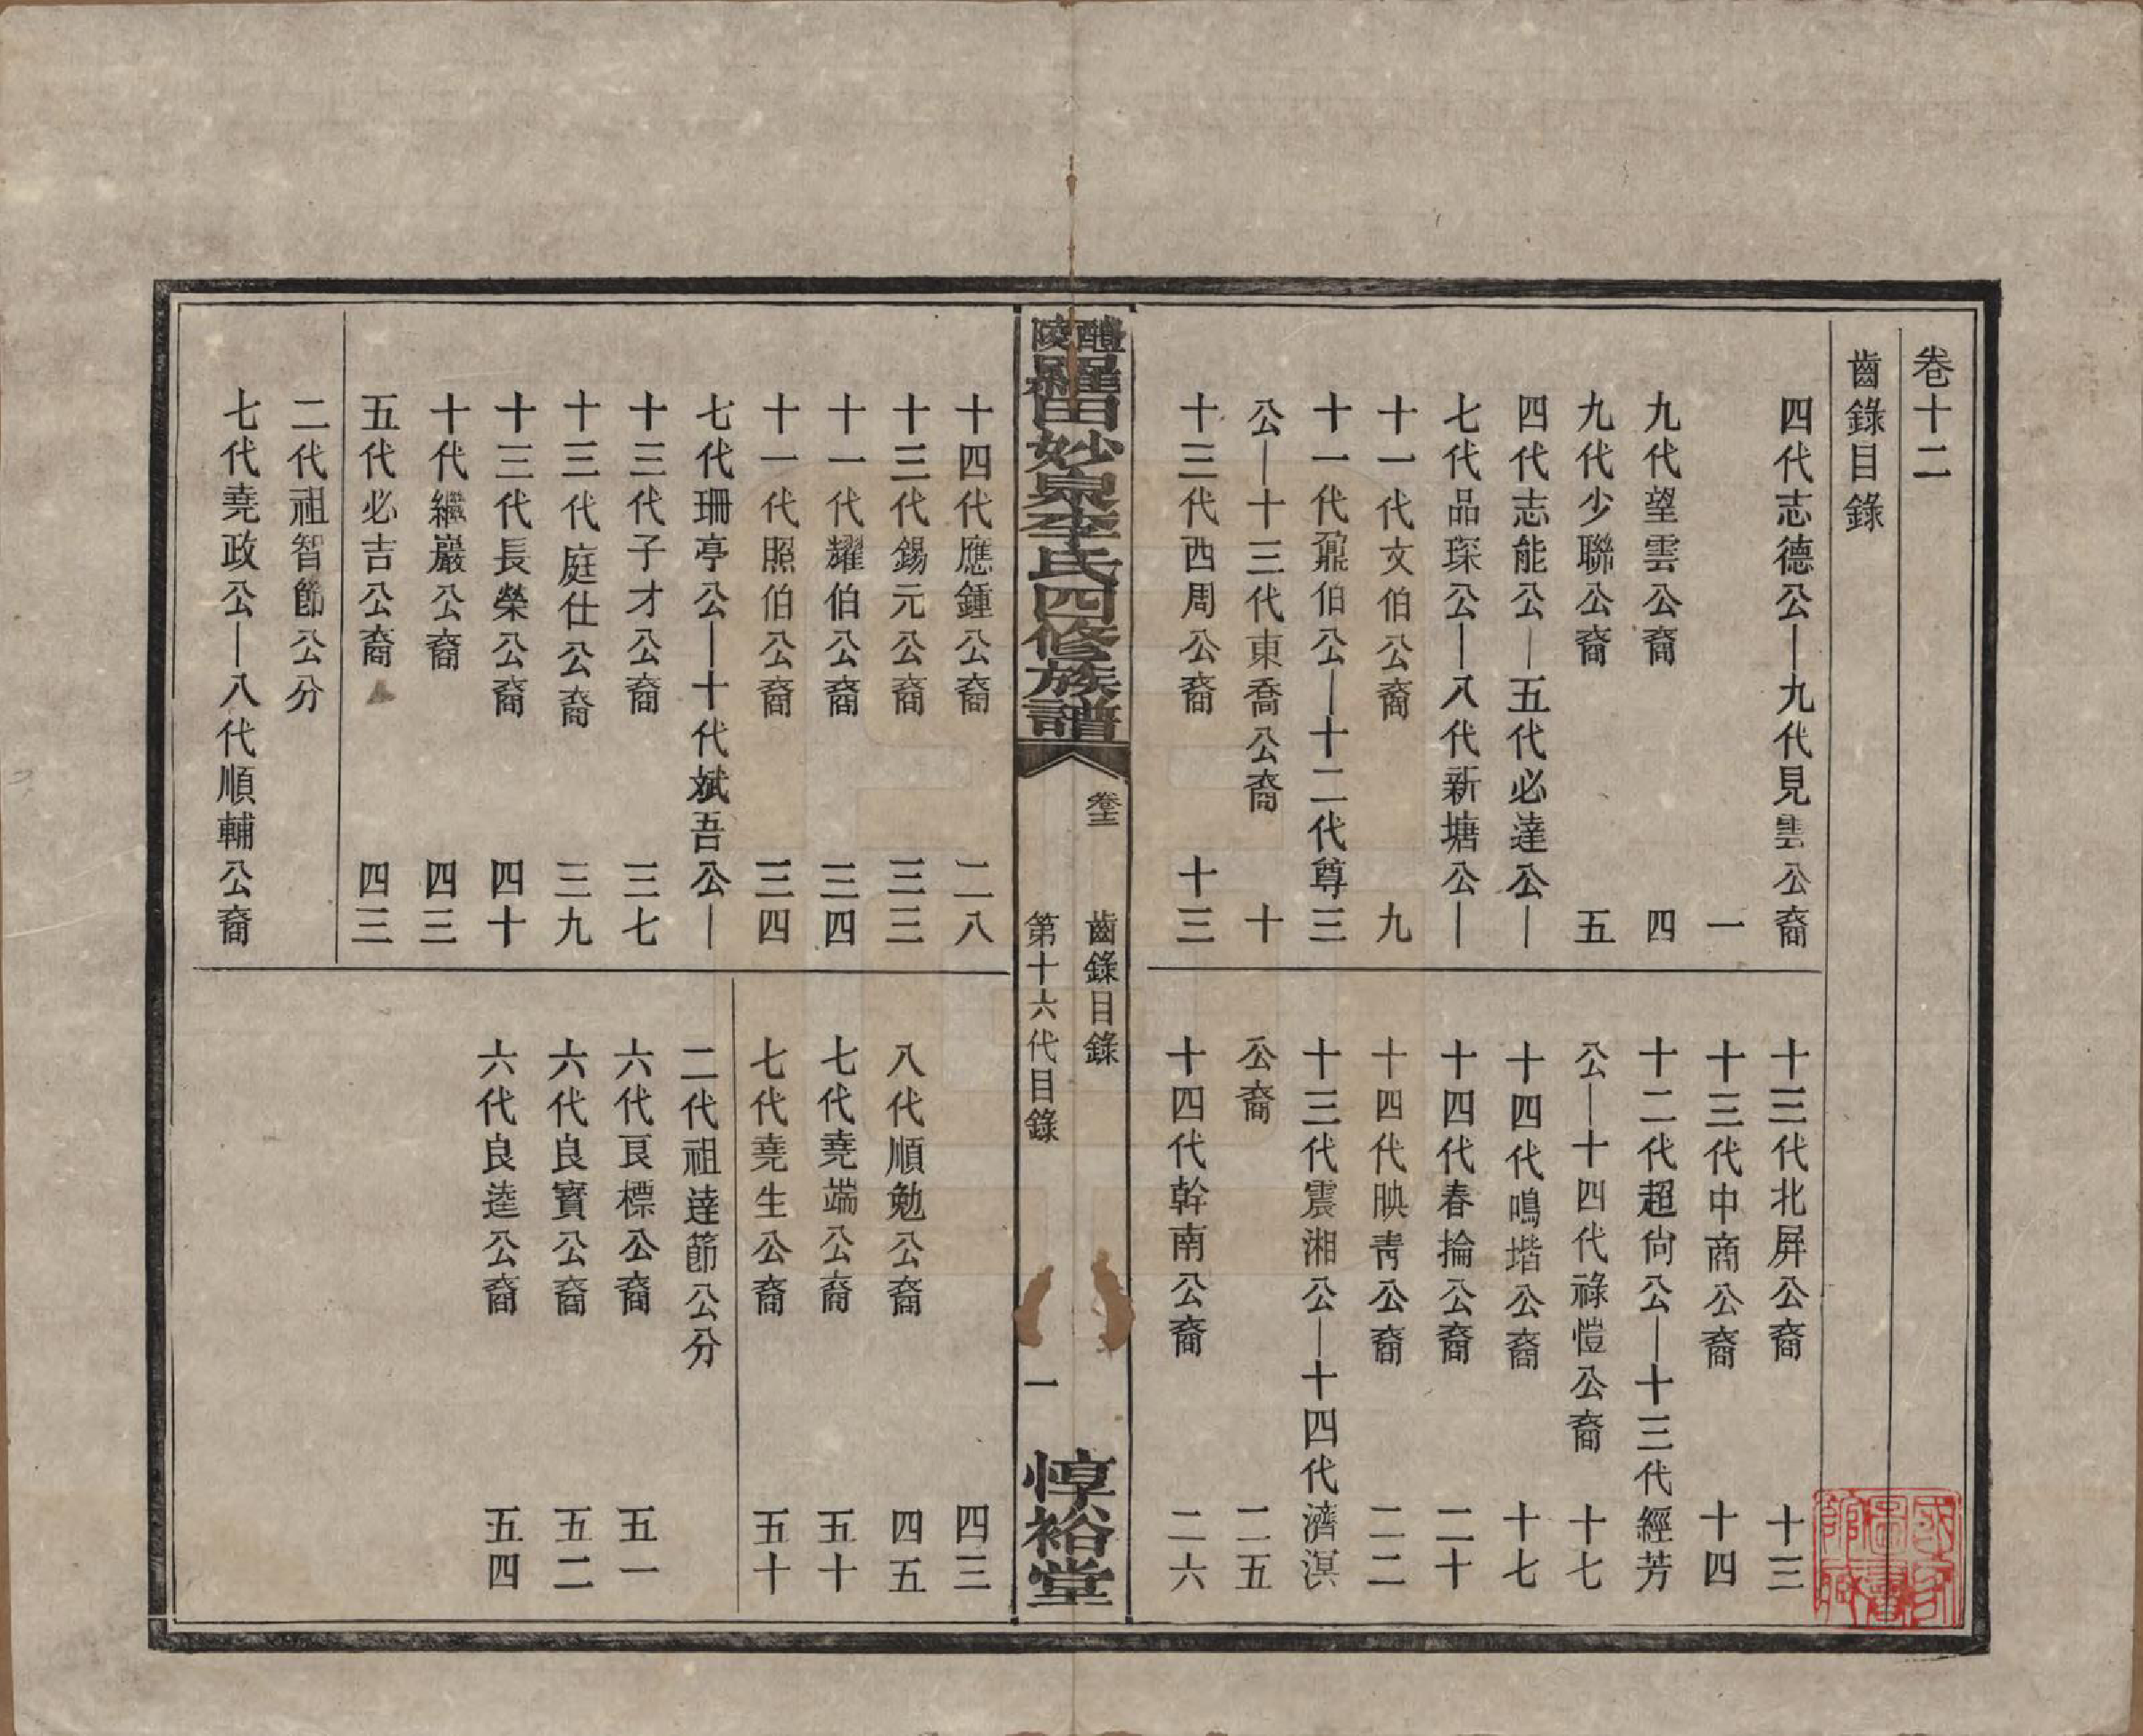 卷十二
齒錄目錄
四代志德公—九代見雲公裔
一
九代望雲公裔 四
九代少聯公裔 五
四代志能公—五代必達公—
七代品琛公—八代新塘公—
十一代文伯公裔 九
十一代鼐伯公—十二代尊三
公—十三代東喬公裔 十
十三代西周公裔 十三
十三代北屏公裔 十三
十三代中商公裔 十四
十二代超尙公—十三代經芳
公—十四代祿愷公裔 十七
十四代鳴堦公裔 十七
十四代春掄公裔 二十
十四代映靑公裔 二二
十三代震湘公—十四代濟溟
公裔 二五
十四代幹南公裔 二六
醴陵羅田妙泉李氏四修族譜
卷十二 齒錄目錄
第十六代目錄 一
惇裕堂
十四代應鍾公裔 二八
十三代錫元公裔 三三
十一代耀伯公裔 三四
十一代照伯公裔 三四
七代珊亭公—十代斌吾公—
十三代子才公裔 三七
十三代庭仕公裔 三九
十三代長榮公裔 四十
十代繼巖公裔 四三
五代必吉公裔 四三
二代祖智節公分
七代堯政公—八代順輔公裔
四三
八代順勉公裔 四五
七代堯端公裔 五十
七代堯生公裔 五十
二代祖達節公分
六代良標公裔 五一
六代良寶公裔 五二
六代良逵公裔 五四